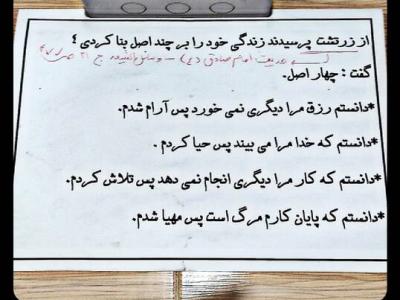 از زرتشت پرسیدند زندگی خود را بر چند اصل بنا کردی ؟
حدیث امام صادق (ع) - وسائل الشیعه ج ۲۱
گفت : چهار اصل.
*دانستم رزق مرا دیگری نمی خورد پس آرام شدم.
*دانستم که خدا مرا می بیند پس حیا کردم .
*دانستم که کار مرا دیگری انجام نمی دهد پس تلاش کردم.
*دانستم که پایان کارم مرگ است پس مهیا شدم.